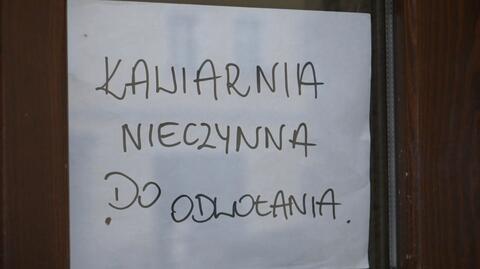 KAWIARNIA
NIECZYNNA
DO ODWOŁANIA.